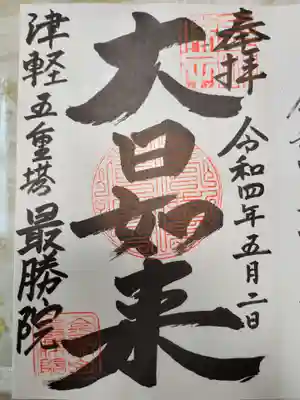 奉拝
令和四年五月二日
大日如来
津軽五重塔
最勝院